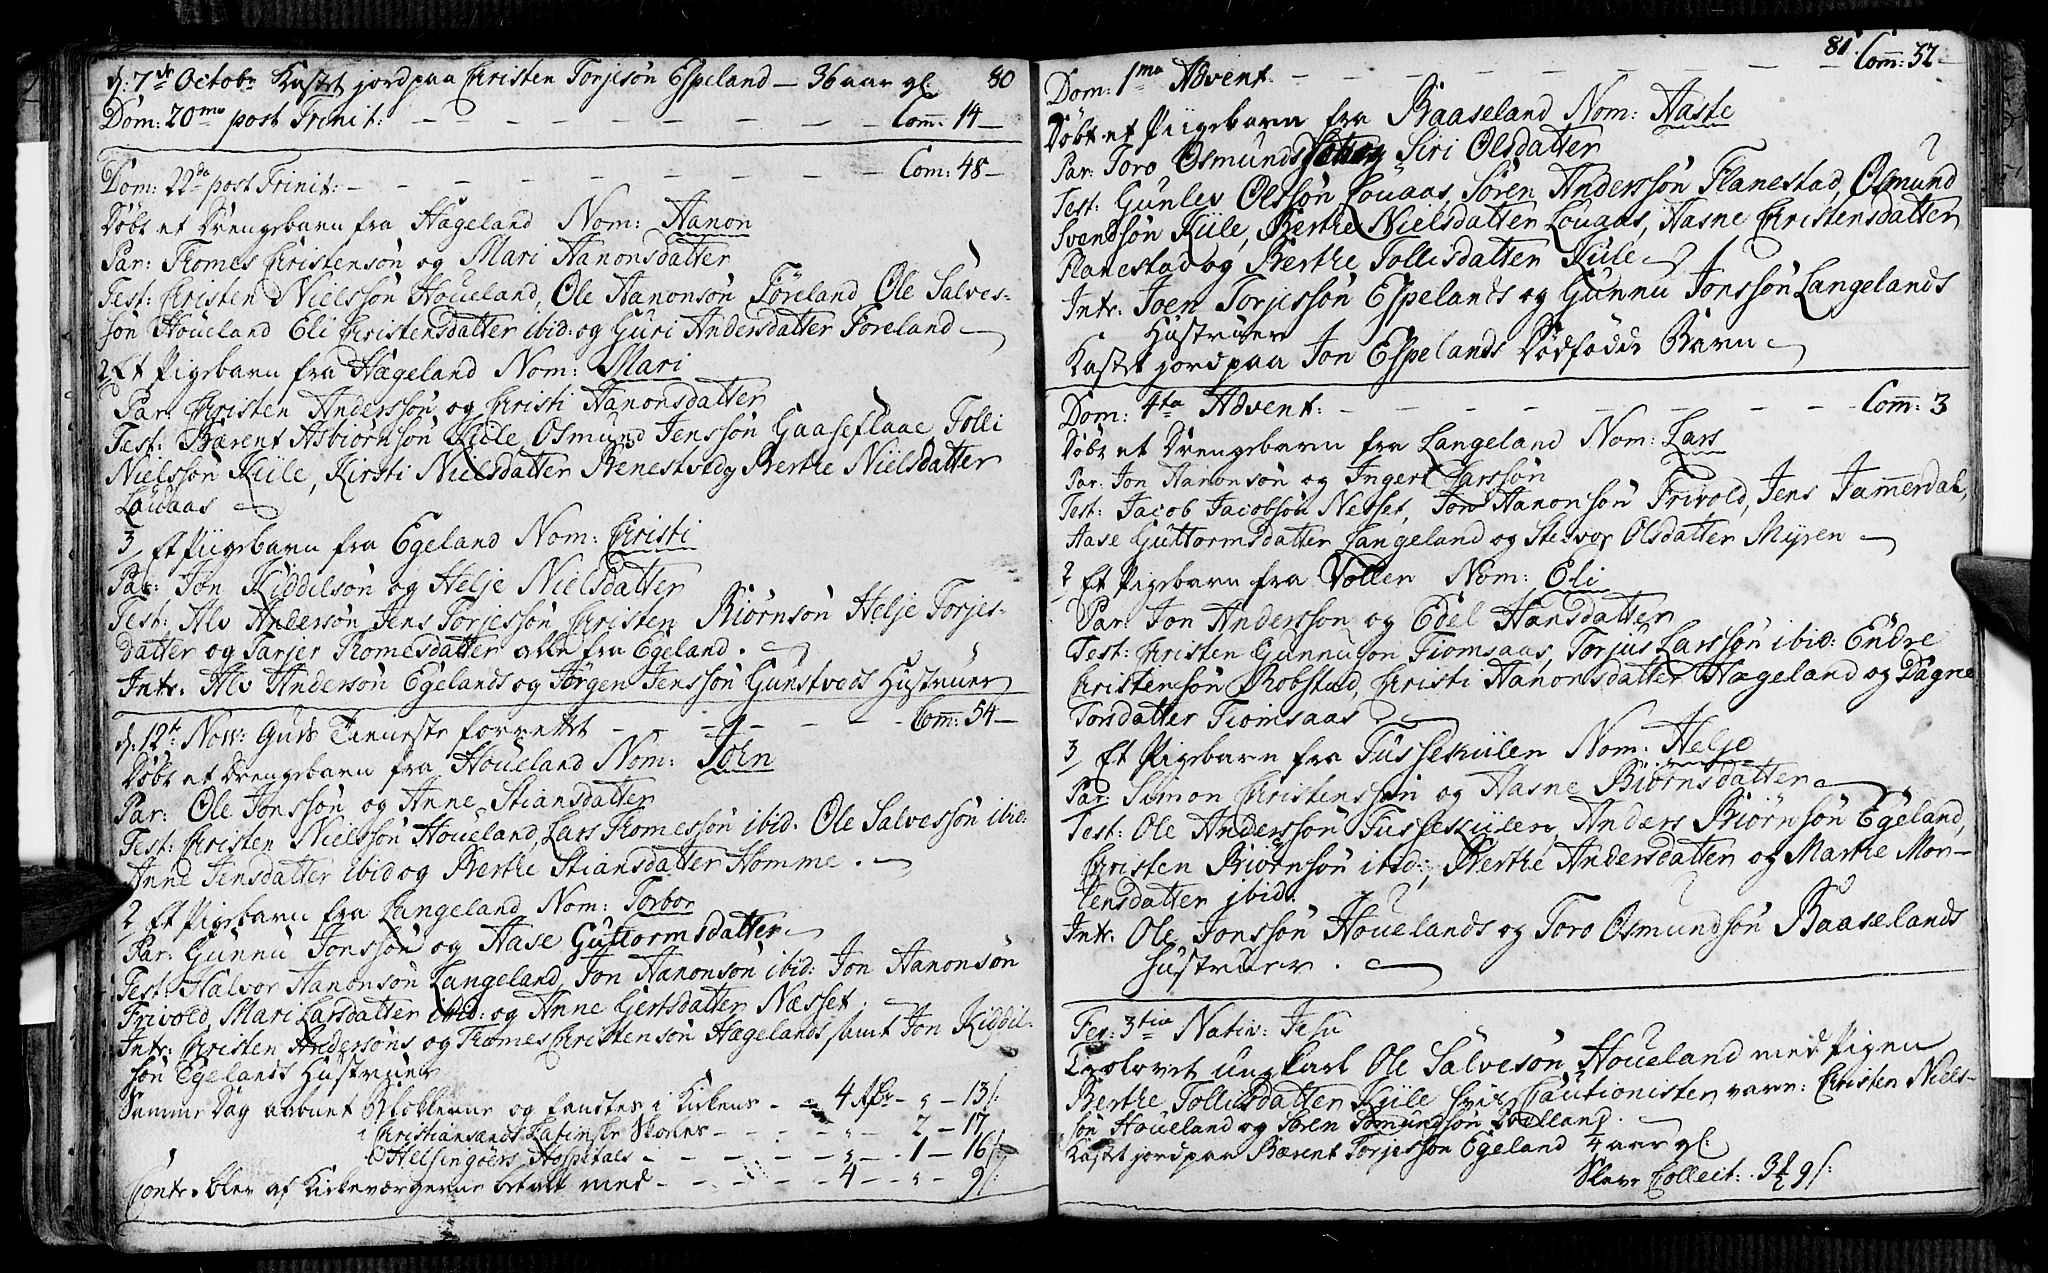 d: 7de Octobr Kastet jord paa Christen Torjesøn Espeland — 36 aar gl: 80
Dom: 20ma post Trinit: — — — — — — — Com: 14 —
Dom: 22da post Trinit: — — — — — — — Com: 48 —
Døbt et Drengebarn fra Hægeland Nom: Aanon
Par: Thomes Christensøn og Mari Aanonsdatter
Test: Christen Nielssøn Houeland, Ole Aanonsøn Føreland Ole Salves-
søn Houeland Eli Christensdatter ibid: og Guri Andersdatter Foreland
2 Et Pigebarn fra Hægeland Nom: Mari
Par: Christen Anderssøn og Christi Aanonsdatter
Test: Bærent Asbiørnsøn Kiile, Osmund Jenssøn Gaaseflaae Tolli
Nielssøn Kiile, Kirsti Nielsdatter Benestvedt Berthe Nielsdatter
Lauaas
3 Et Piigebarn fra Egeland Nom: Christi
Par: Jon Kiddilsøn og Helje Nielsdatter
Test: Alv Andersøn Jens Torjessøn Christen Biørnsøn Helje Torjes-
datter og Tarjer Thomesdatter alle fra Egeland.
Intr: Alv Andersøn Egelands og Jørgen Jenssøn Gunstveds Hustruer
d: 12te Nov: Guds Tieneste forrettet — — — — — Com: 54 —
Døbt et Drengebarn fra Houeland Nom: Joen
Par: Ole Jonssøn og Anne Stiansdatter
Test: Christen Nielssøn Houeland, Lars Thomessøn ibid. Ole Salvessøn ibid:
Anne Jensdatter ibid og Berthe Stiansdatter Homme.
2 Et Pigebarn fra Langeland Nom: Torbor
Par: Gunnu Jonssøn og Aase Guttormsdatter
Test: Halvor Aanonsøn Langeland, Jon Aanonsøn ibid: Jon Aanonsøn
Frivold, Mari Larsdatter ibid: og Anne Gertsdatter Næsset.
Intr: Christen Andersøns og Thomes Christensøn Hægelands samt Jon Kiddil-
søn Egelands Hustruer
Samme Dag aabnet Blokkerne og fandtes i Kirkens — 4 — 13 s:
i Christiansands Latinske Skoeles — — — 2 — 17
i Helsingøers Hospitals — — — 1 — 16 s:
Conto blev af Kirkeværgerne betalt med — — — 4 — 9 s:
81. Com: 32 —
Dom: 1ma Advent — — — — — — —
Døbt et Piigebarn fra Baaseland Nom: Aaste
Par: Toro Osmunds og Siri Olsdatter
Test: Gunlev Olssøn Louaas, Søren Anderssøn Flanestad, Osmund
Svendsøn Kiile, Berthe Nielsdatter Louaas, Aasne Christensdatter
Flanestad og Berthe Tollisdatter Kiile
Intr: Joen Torjessøn Espelands og Gunnu Jonssøn Langelands
Hustruer
Kastet jord paa Jon Espelands Dødfødde Barn
Dom: 4ta Advent: — — — — — — — Com: 3
Døbt et Drengebarn fra Langeland Nom: Lars
Par: Jon Aanonsøn og Ingert Larssøn
Test: Jacob Jacobsøn Nesset, Jon Aanonsøn Frivold, Jens Jammerdal,
Aase Guttormsdatter Langeland og Stenvor Olsdatter Myren
2 Et Pigebarn fra Vollen Nom: Eli
Par: Jon Anderssøn og Edel Hansdatter
Test: Christen Gunnusøn Fiomsaas, Torjus Larssøn ibid: Endre
Christensøn Robstad, Christi Aanonsdatter Hægeland og Dagne
Torsdatter Fiomsaas
3 Et Pigebarn fra Tussekiilen Nom: Helje
Par: Simon Christenssøn og Aasne Biørnsdatter
Test: Ole Anderssøn Tussekiilen, Anders Biørnsøn Egeland,
Christen Biørnsøn ibid:, Berthe Andersdatter og Marthe Mor-
tensdatter ibid.
Intr: Ole Jonssøn Houelands og Toro Osmundsøn Baaselands
Hustruer.
Fer: 3tia Nativ: Jesu
Trolovet ungkarl Ole Salvesøn Houeland med Pigen
Berthe Tollisdatter Kiile hvis Cautionister vare: Christen Niels-
søn Houeland og Søren Tomundsøn
Kastet jord paa Bærent Torjessøn Egeland 4 aar gl:
Slave Collect: 9 s: